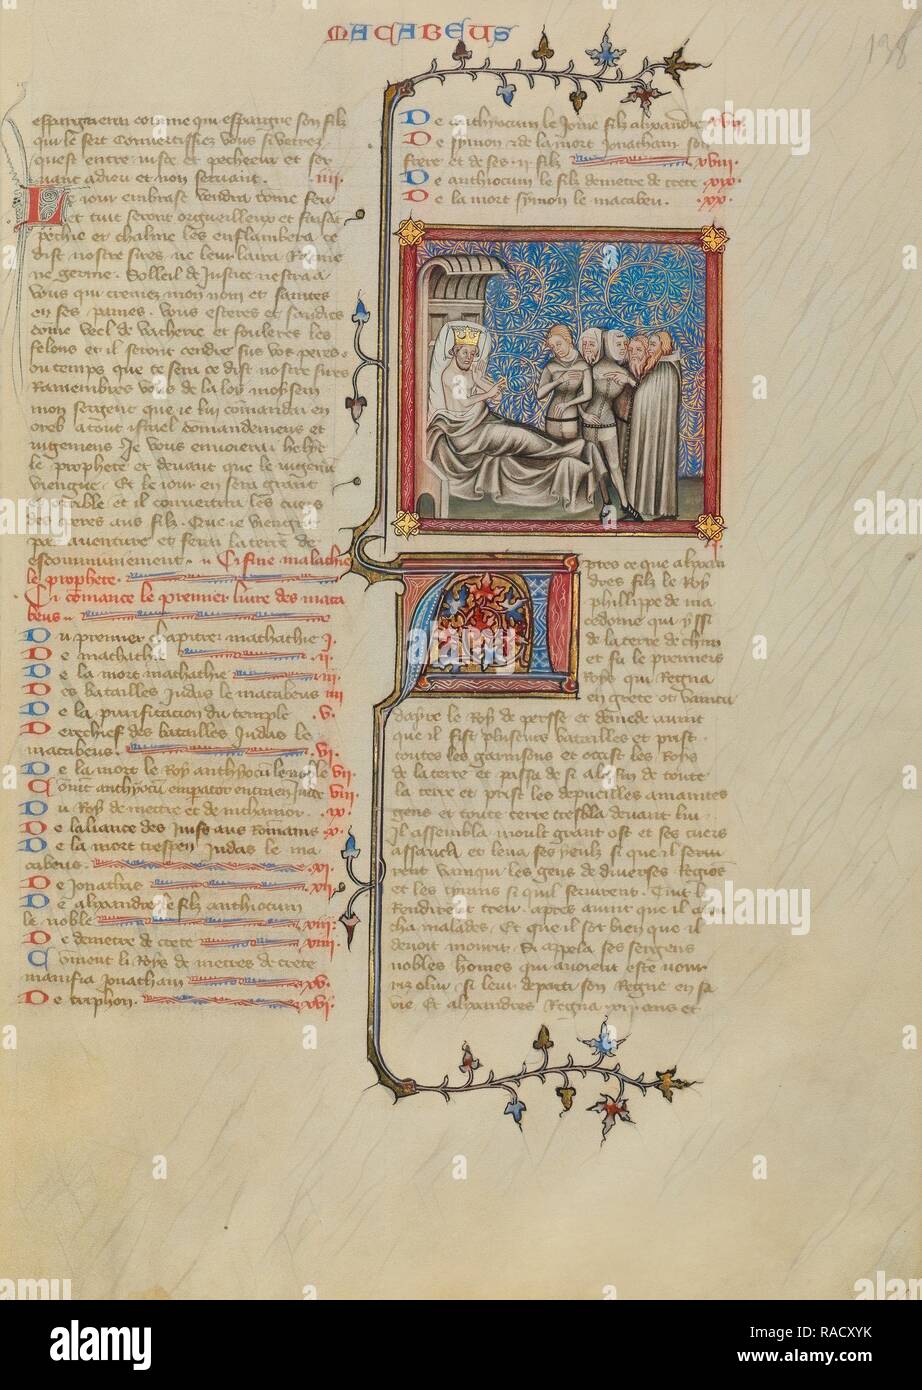 MACABEUS
138
espargnera come qui espargne son filz
qui le sert Convertissiez vous si verrez
quest entre iuste et pecheeur et ser
uant a dieu et non seruant. iiii.
Le iour embrase vendra come feu
et tuit seront orgueilleux et
pechie et chalme les enflambera ce
dist nostre sires ne leur laira Racine
ne germe. Solleil de Justice nestra a
vous qui cremez mon nom et
en ses pannes. Vous
come veel de vacherie et les
felons et il seront cendre sus vos
ou temps que ce sera ce dist nostre sires
Ramembres vous de la loy moysen
mon sergent que ie lui comandai en
oreb a tout israel comandemens et
iugemens. Je vous envoierai helye
le prophete et devant que le
viengne. Et le iour en sera grant
et et il convertira les cuers
des peres aus filz. Que ie viengne
par aventure et la terre de
escommuniement. Ci fine malachie
le prophete.
Ci comance le premier livre des maca
beus
Du premier chapitre mathathie i.
De mathathie ii.
De la mort mathathie iii.
Des batailles Judas le macabeus iiii
De la purification du temple v.
Derechief des batailles Judas le
macabeus. vi.
De la mort le Roy anthyocu le noble vii.
Coment anthyocu empator Judee viii.
Du Roy demetre et de nichanor. ix.
De laliance des Juifs aus Romains x.
De la mort Judas le ma
cabeus. xi.
De Jonathas xii.
De alixandre le filz anthiocum
le noble xiii.
De demetre de crete xiiii.
Coment li Roys demetres de crete
manifia Jonatham xv.
De triphon. xvi.
De anthyocum le Jone filz alixandre xvii.
De symon et de la mort Jonatham son
frere et de ses .ii. filz xviii.
De anthiocum le filz demetre de crete xix.
De la mort symon le macabeu. xx.
i.
Apres ce que alixan
dres filz le Roy
phillippe de ma
cedoine qui yssi
de la terre de
et fu le premiers
Roys qui Regna
en grece ot vaincu
daire le Roy de persse et de mede avint
que il fist pluseurs batailles et prist
toutes les garnisons et occist les Roys
de la terre et passa de si a la fin de toute
la terre et prist les depueilles a maintes
gens et toute terre trembla devant lui.
Il assembla moult grant ost et ses cuers
et leva ses yeulz si que il
vainqui les gens de diverses Regions
et les tyrans si quil servirent. Et
Rendirent treu. apres avint que il
cha malades. Et que il sot bien que il
devoit mourir. Si appela ses sergens
nobles homes qui avoient este nour
riz o lui. si leur departi son Regne en sa
vie. Et alixandres Regna .xii. ans et
alamy
Image ID: RACXYK
www.alamy.com